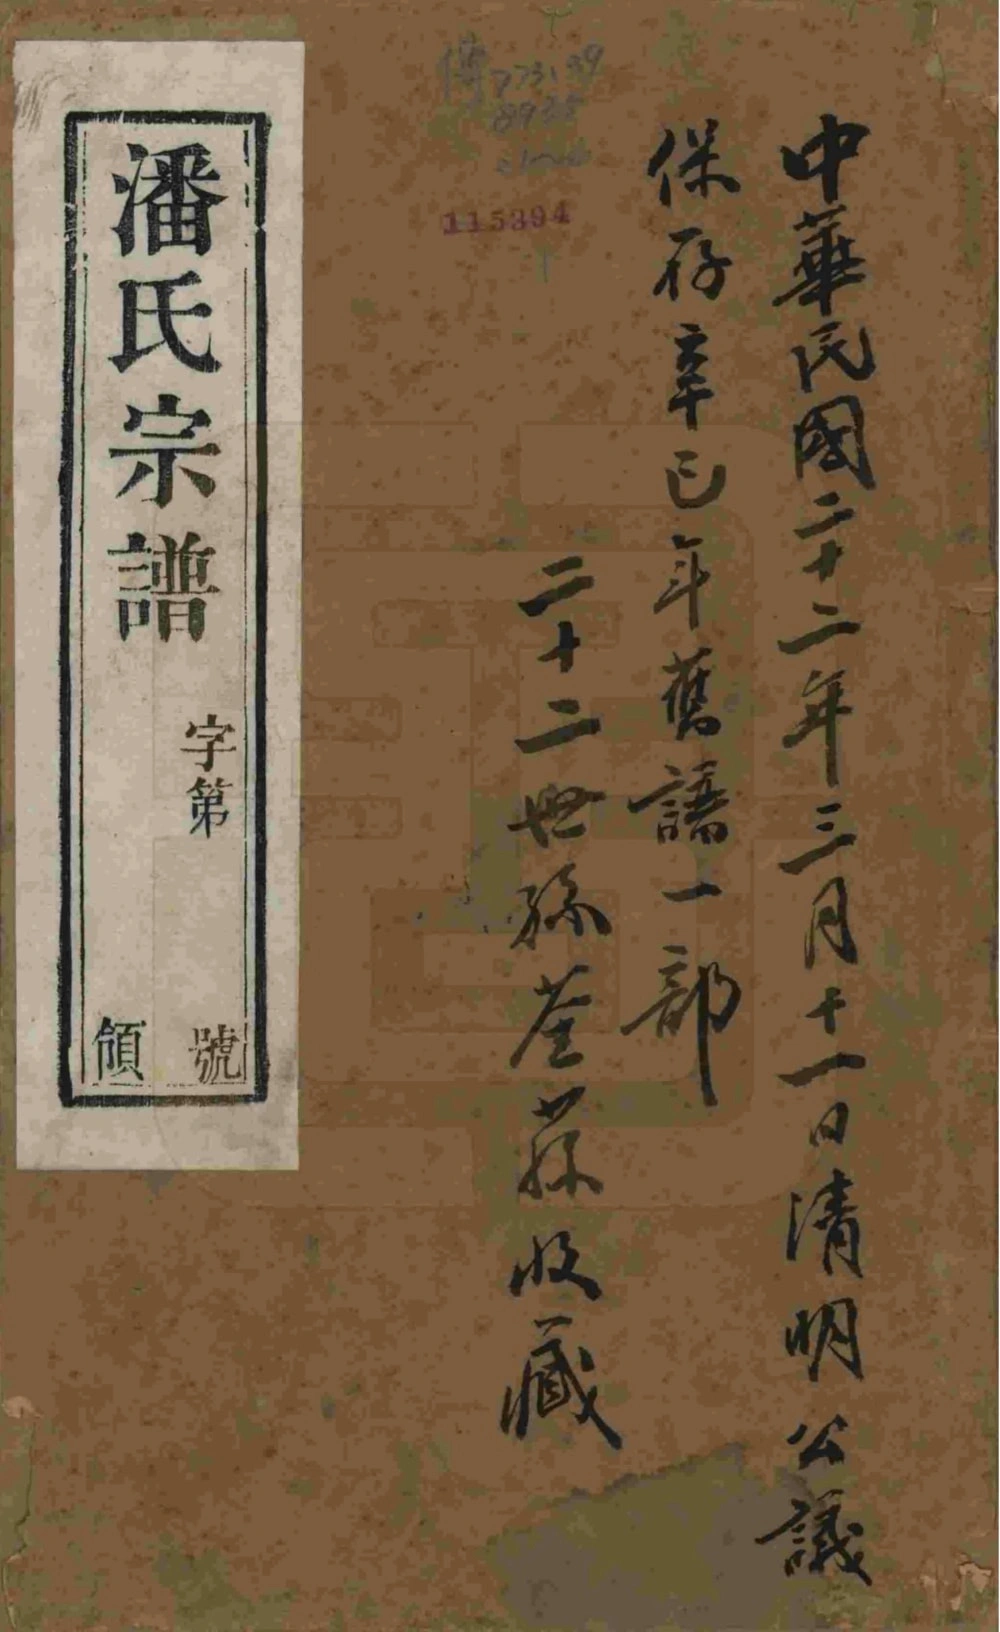 中華民國二十二年三月十一日清明公議
保存辛巳年舊譜一部
二十二世孫荃蓀收藏
潘氏宗譜
字第
號
領
傳 773.139
8935
115394